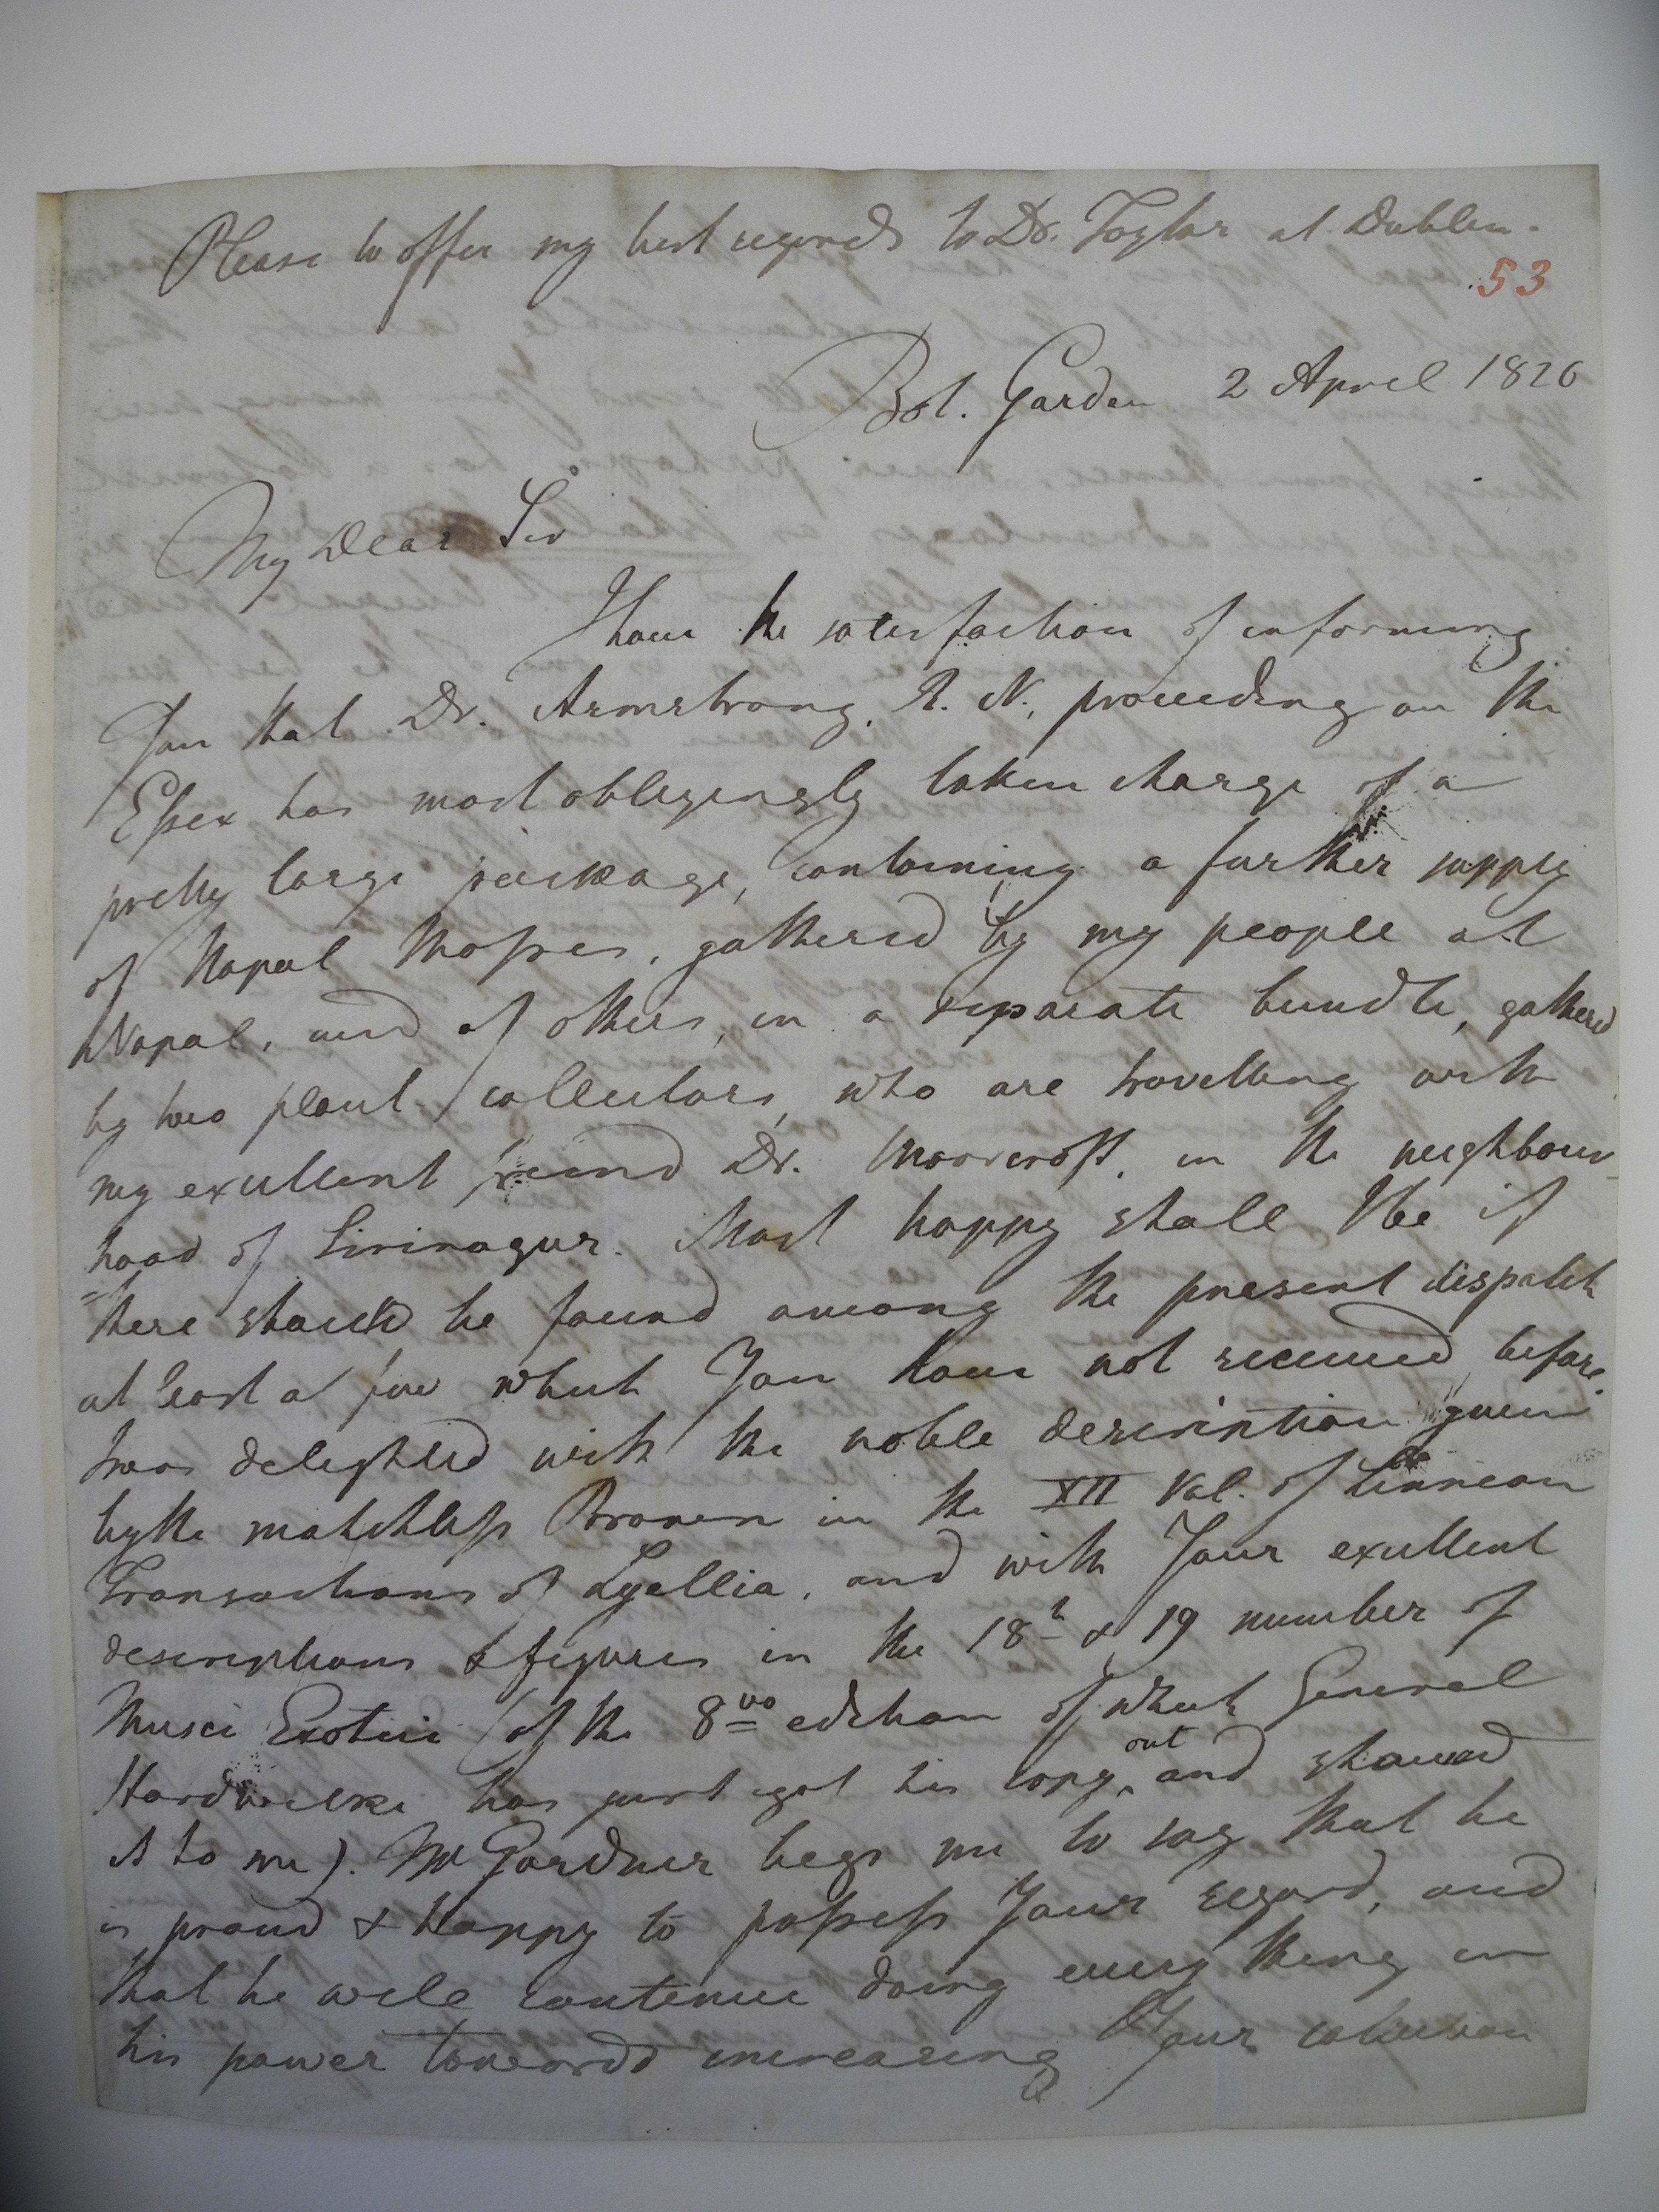 Please to offer my best regards to Dr. Taylor at Dublin.
53
Bot. Garden 2 April 1820
My Dear Sir
I have the satisfaction of informing
You that Dr. Armstrong, R. N., proceeding on the
Essex has most obligingly taken charge of a
pretty large package, containing a further supply
of Napal Mosses, gathered by my people at
Napal, and of others, in a separate bundle, gathered
by two plant collectors, who are travelling with
my excellent friend Dr. Moorcroft, in the neighbour-
=hood of Sirinagur. Most happy shall I be if
there should be found among the present dispatch
at least a few which You have not received before.
I was delighted with the noble description given
by the matchless Brown in the XII Vol. of Linnean
Transactions of Lyellia, and with Your excellent
descriptions & figures in the 18th & 19 number of
Musci Exotici (of the 8vo edition of which General
Hardwicke has just got his copy out and showed
it to me). Mr Gardner begs me to say that he
is proud & happy to possess Your regard, and
that he will continue doing every thing in
his power towards increasing Your collection